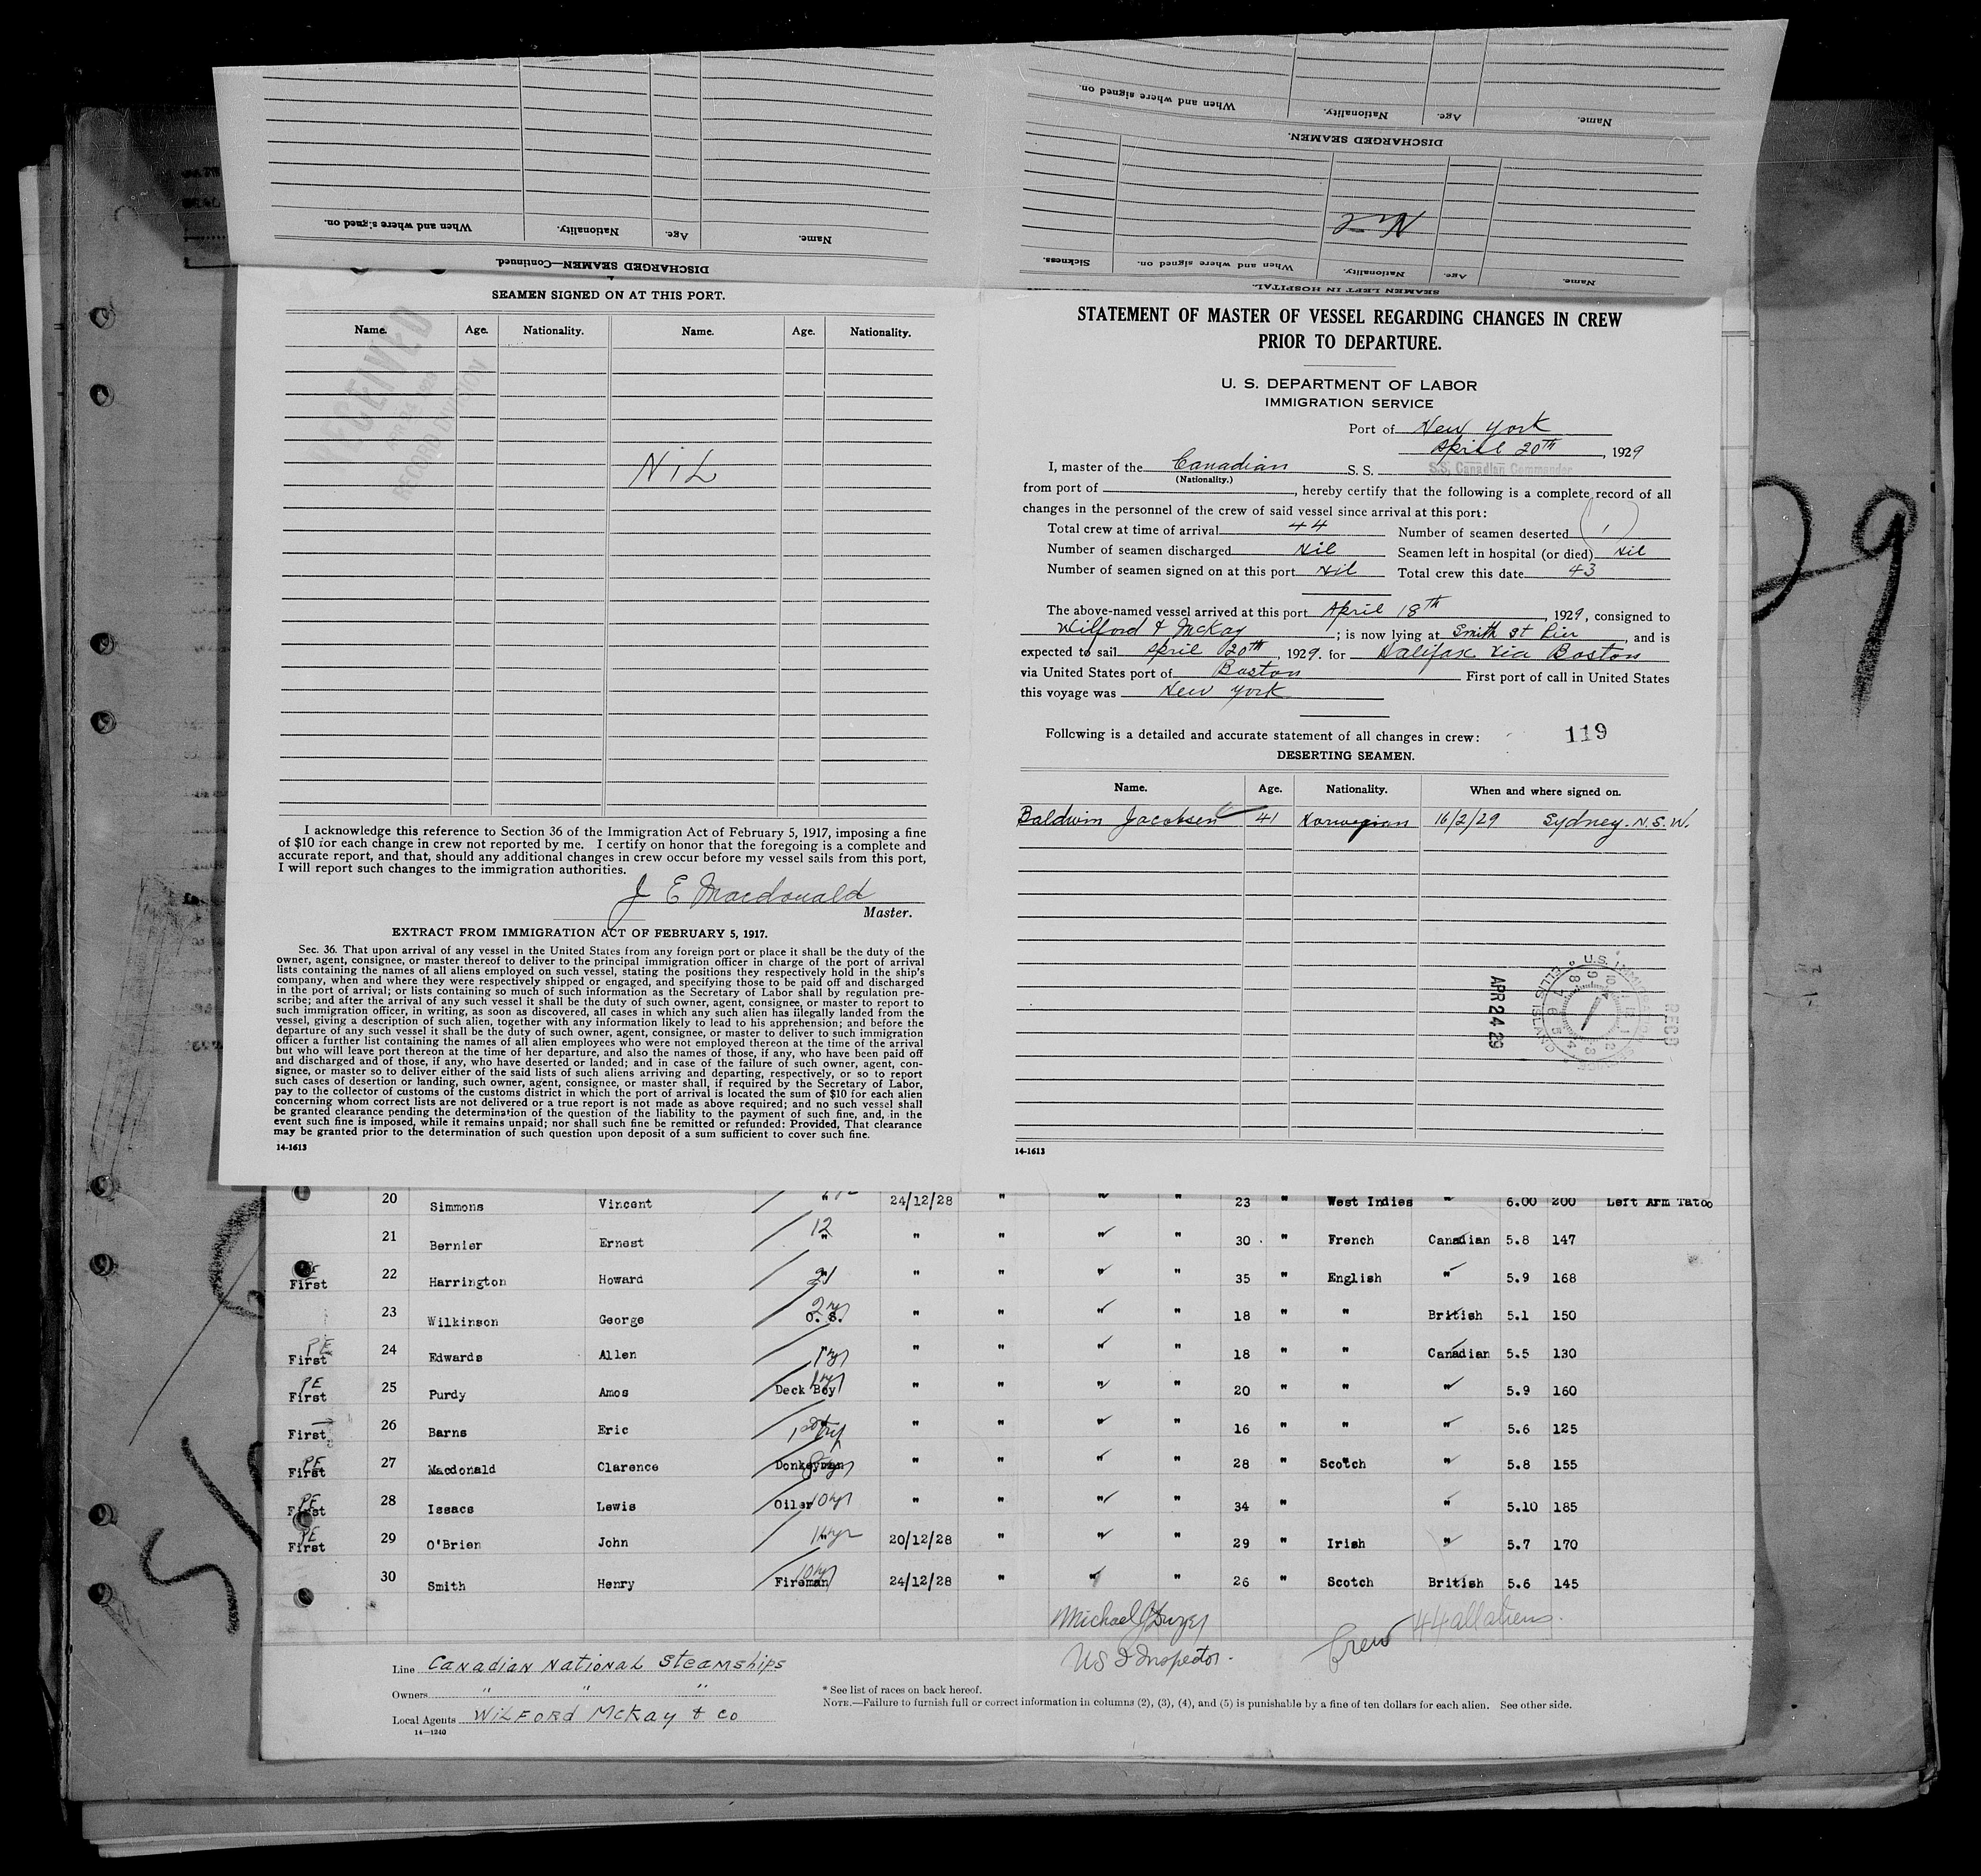 When and where signed on.
Nationality.
Age.
Name.
DISCHARGED SEAMEN—Continued.
When and where signed on.
Nationality.
Age.
Name.
DISCHARGED SEAMEN.
Nil
Sickness.
When and where signed on.
Nationality.
Age.
Name.
SEAMEN LEFT IN HOSPITAL.
SEAMEN SIGNED ON AT THIS PORT.
Name. Age. Nationality. Name. Age. Nationality.
RECEIVED
RECORD DIVISION
NiL
I acknowledge this reference to Section 36 of the Immigration Act of February 5, 1917, imposing a fine
of $10 for each change in crew not reported by me. I certify on honor that the foregoing is a complete and
accurate report, and that, should any additional changes in crew occur before my vessel sails from this port,
I will report such changes to the immigration authorities.
J E Macdonald
Master.
EXTRACT FROM IMMIGRATION ACT OF FEBRUARY 5, 1917.
Sec. 36. That upon arrival of any vessel in the United States from any foreign port or place it shall be the duty of the
owner, agent, consignee, or master thereof to deliver to the principal immigration officer in charge of the port of arrival
lists containing the names of all aliens employed on such vessel, stating the positions they respectively hold in the ship's
company, when and where they were respectively shipped or engaged, and specifying those to be paid off and discharged
in the port of arrival; or lists containing so much of such information as the Secretary of Labor shall by regulation pre-
scribe; and after the arrival of any such vessel it shall be the duty of such owner, agent, consignee, or master to report to
such immigration officer, in writing, as soon as discovered, all cases in which any such alien has illegally landed from the
vessel, giving a description of such alien, together with any information likely to lead to his apprehension; and before the
departure of any such vessel it shall be the duty of such owner, agent, consignee, or master to deliver to such immigration
officer a further list containing the names of all alien employees who were not employed thereon at the time of the arrival
but who will leave port thereon at the time of her departure, and also the names of those, if any, who have been paid off
and discharged and of those, if any, who have deserted or landed; and in case of the failure of such owner, agent, con-
signee, or master so to deliver either of the said lists of such aliens arriving and departing, respectively, or so to report
such cases of desertion or landing, such owner, agent, consignee, or master shall, if required by the Secretary of Labor,
pay to the collector of customs of the customs district in which the port of arrival is located the sum of $10 for each alien
concerning whom correct lists are not delivered or a true report is not made as above required; and no such vessel shall
be granted clearance pending the determination of the question of the liability to the payment of such fine, and, in the
event such fine is imposed, while it remains unpaid; nor shall such fine be remitted or refunded: Provided, That clearance
may be granted prior to the determination of such question upon deposit of a sum sufficient to cover such fine.
14-1613
STATEMENT OF MASTER OF VESSEL REGARDING CHANGES IN CREW
PRIOR TO DEPARTURE.
U. S. DEPARTMENT OF LABOR
IMMIGRATION SERVICE
Port of New York
April 20th, 1929
I, master of the Canadian S. S. S.S. Canadian Commander
(Nationality.)
from port of , hereby certify that the following is a complete record of all
changes in the personnel of the crew of said vessel since arrival at this port:
Total crew at time of arrival 44 Number of seamen deserted 1
Number of seamen discharged Nil Seamen left in hospital (or died) Nil
Number of seamen signed on at this port Nil Total crew this date 43
The above-named vessel arrived at this port April 18th, 1929, consigned to
Wilford & McKay; is now lying at Smith St Pier, and is
expected to sail April 20th, 1929. for Halifax via Boston
via United States port of Boston First port of call in United States
this voyage was New York
Following is a detailed and accurate statement of all changes in crew: 119
DESERTING SEAMEN.
Name. Age. Nationality. When and where signed on.
Baldwin Jacobsen 41 Norwegian 16/2/29 Sydney. N.S.W.
APR 24 29
U.S. IMMIGRATION SERVICE
ELLIS ISLAND
REC'D
14-1613
29
20 Simmons Vincent 24/12/28 " " " 23 " West Indies " 6.00 200 Left Arm Tatoo
21 Bernier Ernest 12 " " " " " 30 " French Canadian 5.8 147
First 22 Harrington Howard " " " " 35 " English " 5.9 168
23 Wilkinson George 2 yr O. S. " " " " 18 " " British 5.1 150
PE First 24 Edwards Allen 1 yr " " " " 18 " " Canadian 5.5 130
PE First 25 Purdy Amos Deck Boy 1 yr " " " " 20 " " " 5.9 160
First 26 Barns Eric " " " " 16 " " " 5.6 125
PE First 27 Macdonald Clarence Donkeyman " " " " 28 " Scotch " 5.8 155
PE First 28 Issacs Lewis Oiler 10 yr " " " " 34 " " 5.10 185
PE First 29 O'Brien John " 20/12/28 " " " 29 " Irish " 5.7 170
30 Smith Henry Fireman 10 yr 24/12/28 " " " 26 " Scotch British 5.6 145
US I Inspector.
Crew 44 all aliens.
Line Canadian National Steamships
Owners " " "
Local Agents Wilford McKay & Co
14—1240
* See list of races on back hereof.
NOTE.—Failure to furnish full or correct information in columns (2), (3), (4), and (5) is punishable by a fine of ten dollars for each alien. See other side.